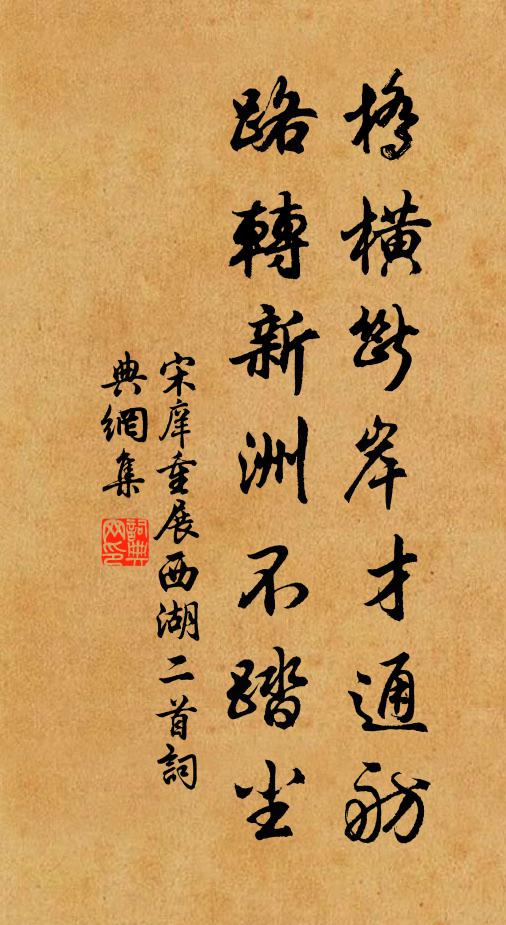 橋橫斷岸才通舫
路轉新洲不踏尘
宋庠重展西湖二首詞
典網集
詞典
网印